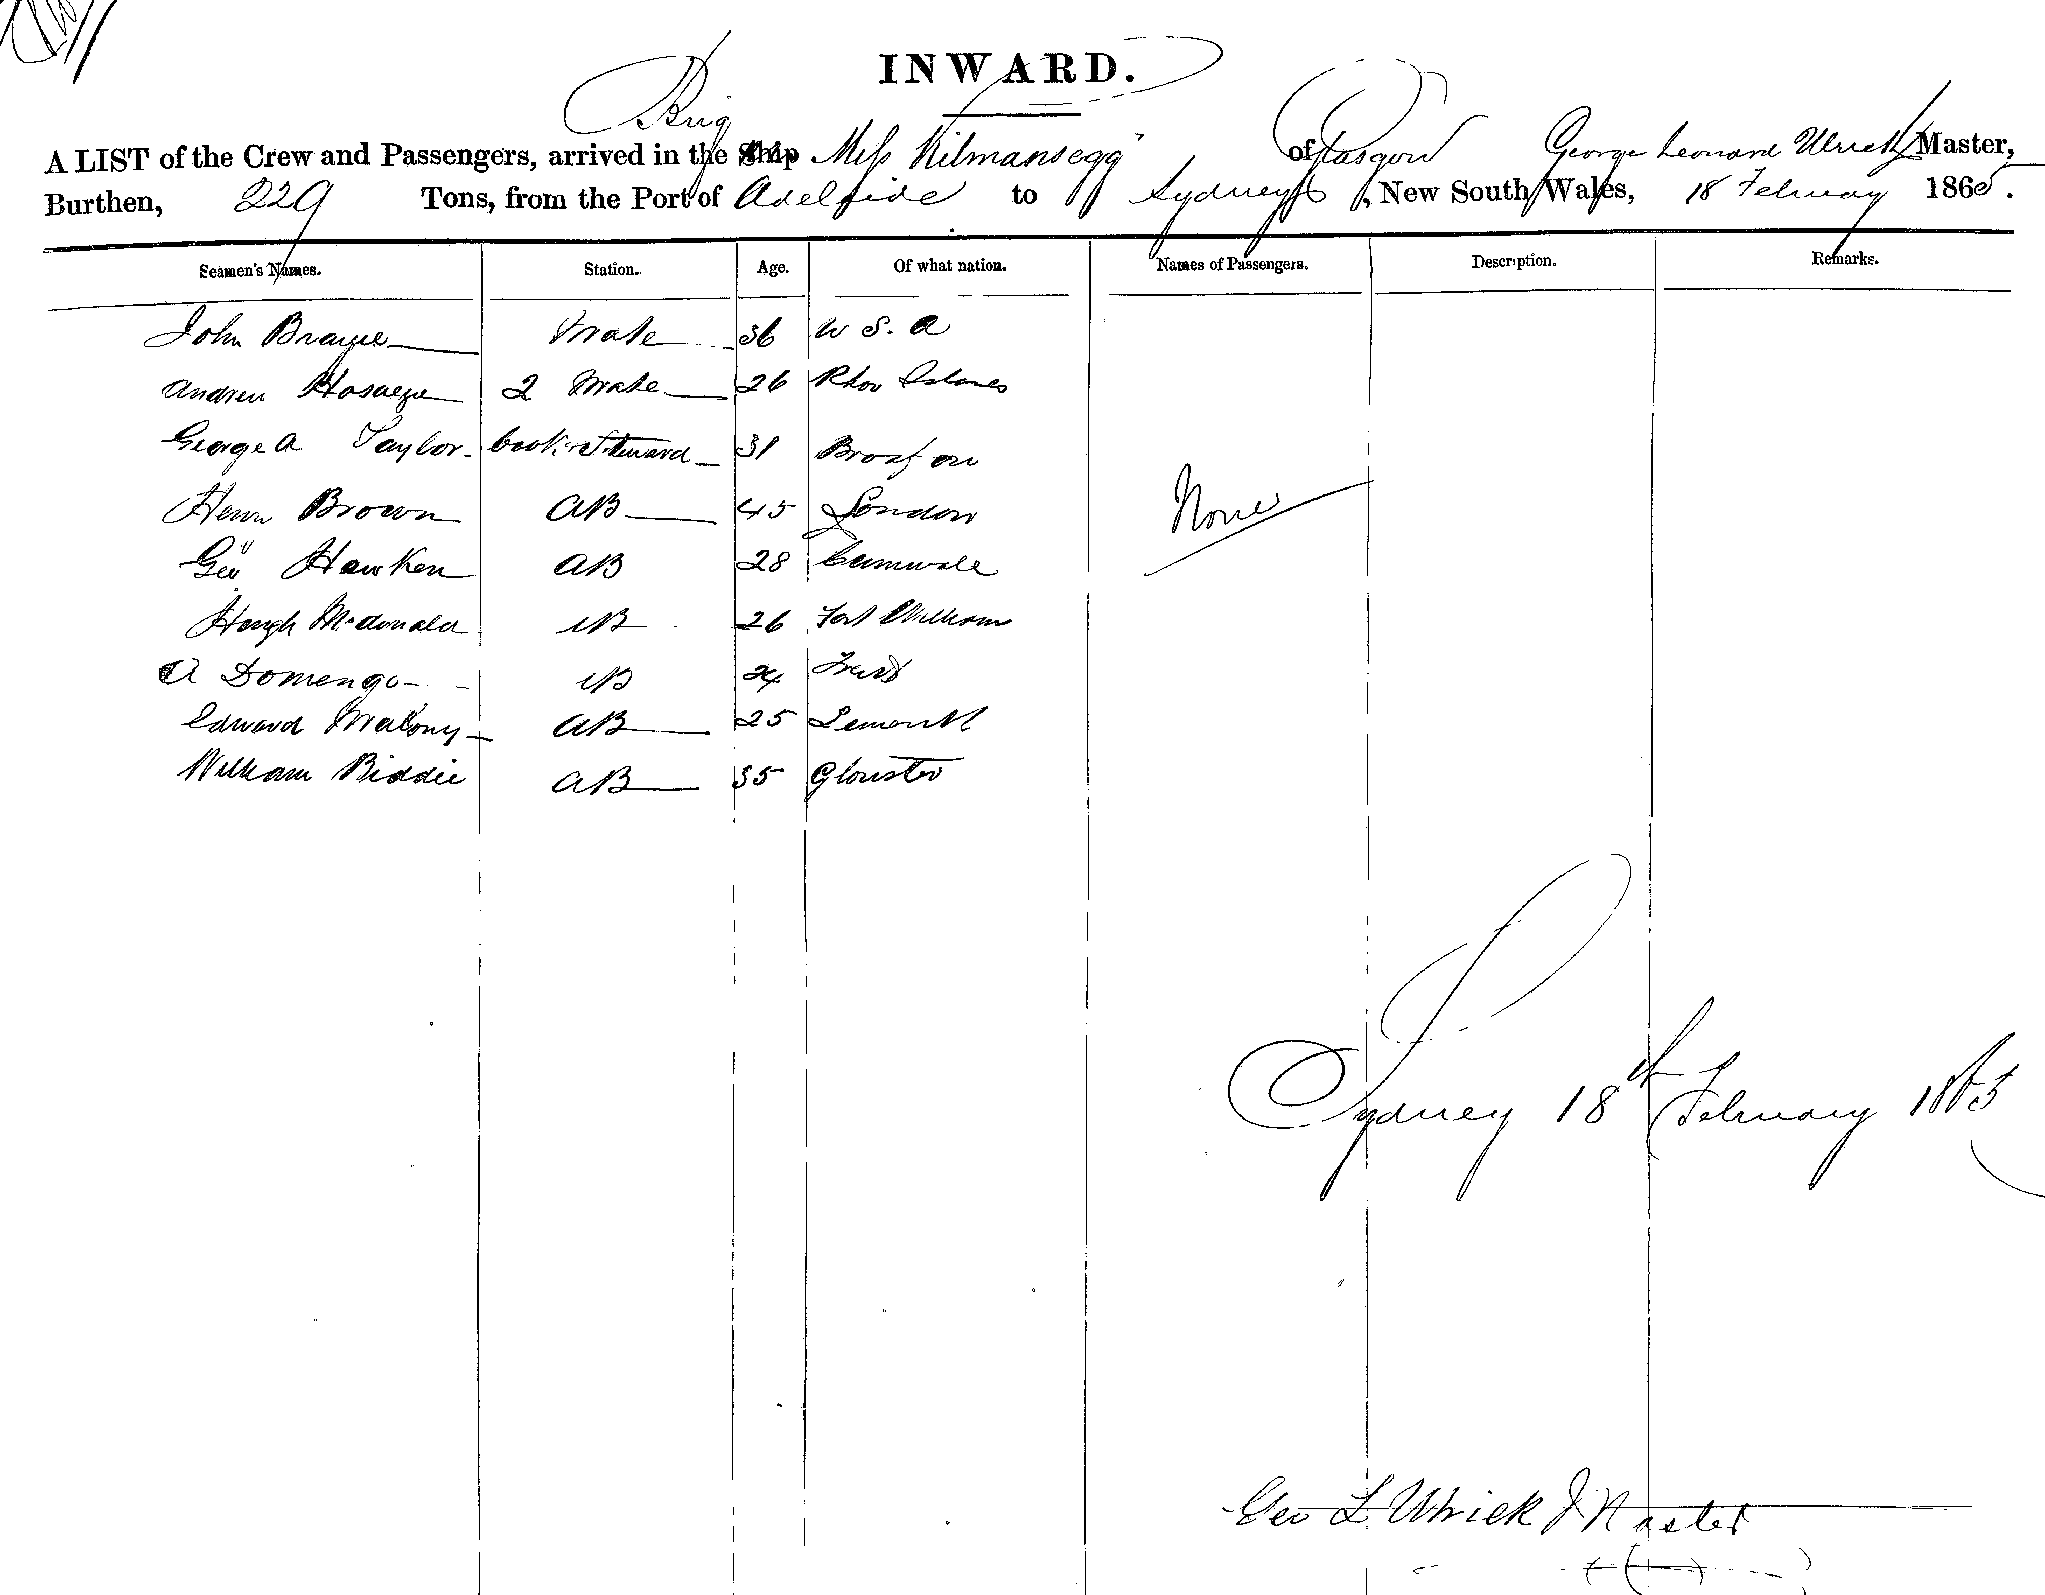 INWARD.
Brig
A LIST of the Crew and Passengers, arrived in the Ship Miss Kilmansegg of Glasgow George Leonard Ulrick Master,
Burthen, 229 Tons, from the Port of Adelaide to Sydney, New South Wales, 18 February 1865.
Seamen's Names. Station. Age. Of what nation. Names of Passengers. Description. Remarks.
John Mate 36 U S. A
Andrew 2 Mate 26
George A Taylor Cook & Steward 31
Brown AB 45 London
Geo Hawken AB 28
None
Hugh McDonald AB 26 Fort William
A Domengo AB
Edward Malony AB 25
William Biddie AB 35 Glouster
Sydney 18th February 1865
Geo L Ulrick Master